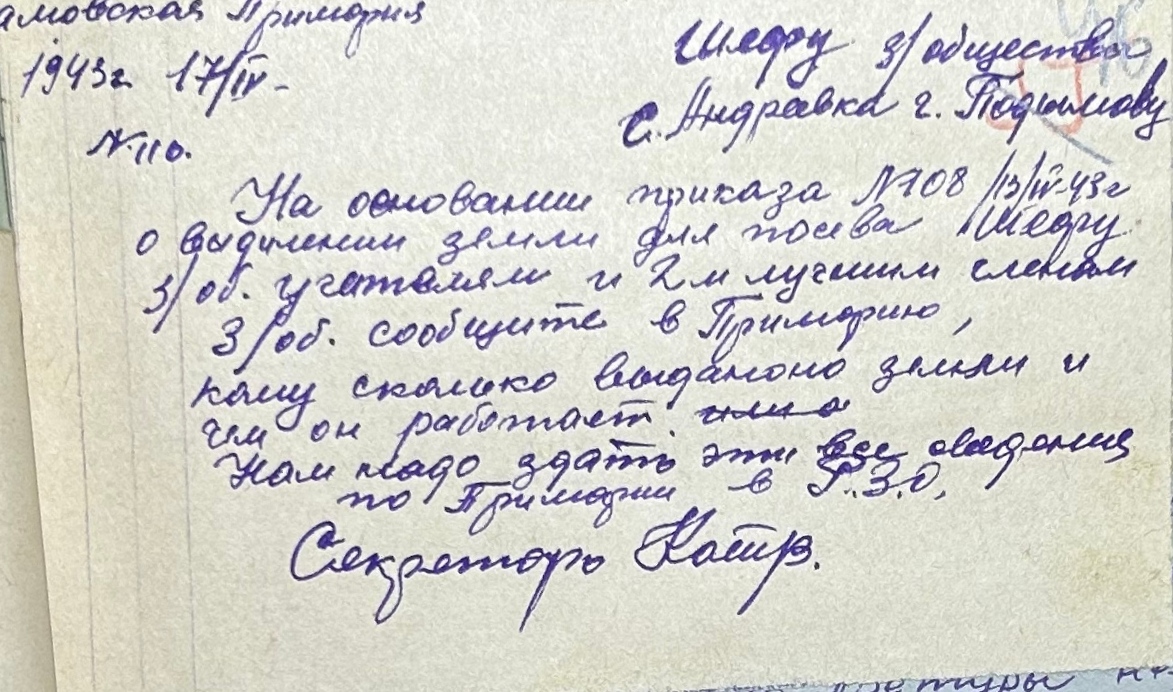 амовская Примария
1943г 17/IV-
N. 110.
Шефу з/общества
с. Андравка г. Подымову
На основании приказа N 108 /13/IV-43г
о выделении земли для посева Шефу
З/об. учителям и 2м лучшим членам
З/об. сообщите в Примарию,
кому сколько выдано земли и
чем он работает.
Нам надо здать эти все сведения
по Примарии в Р.З.О.
Секреторь